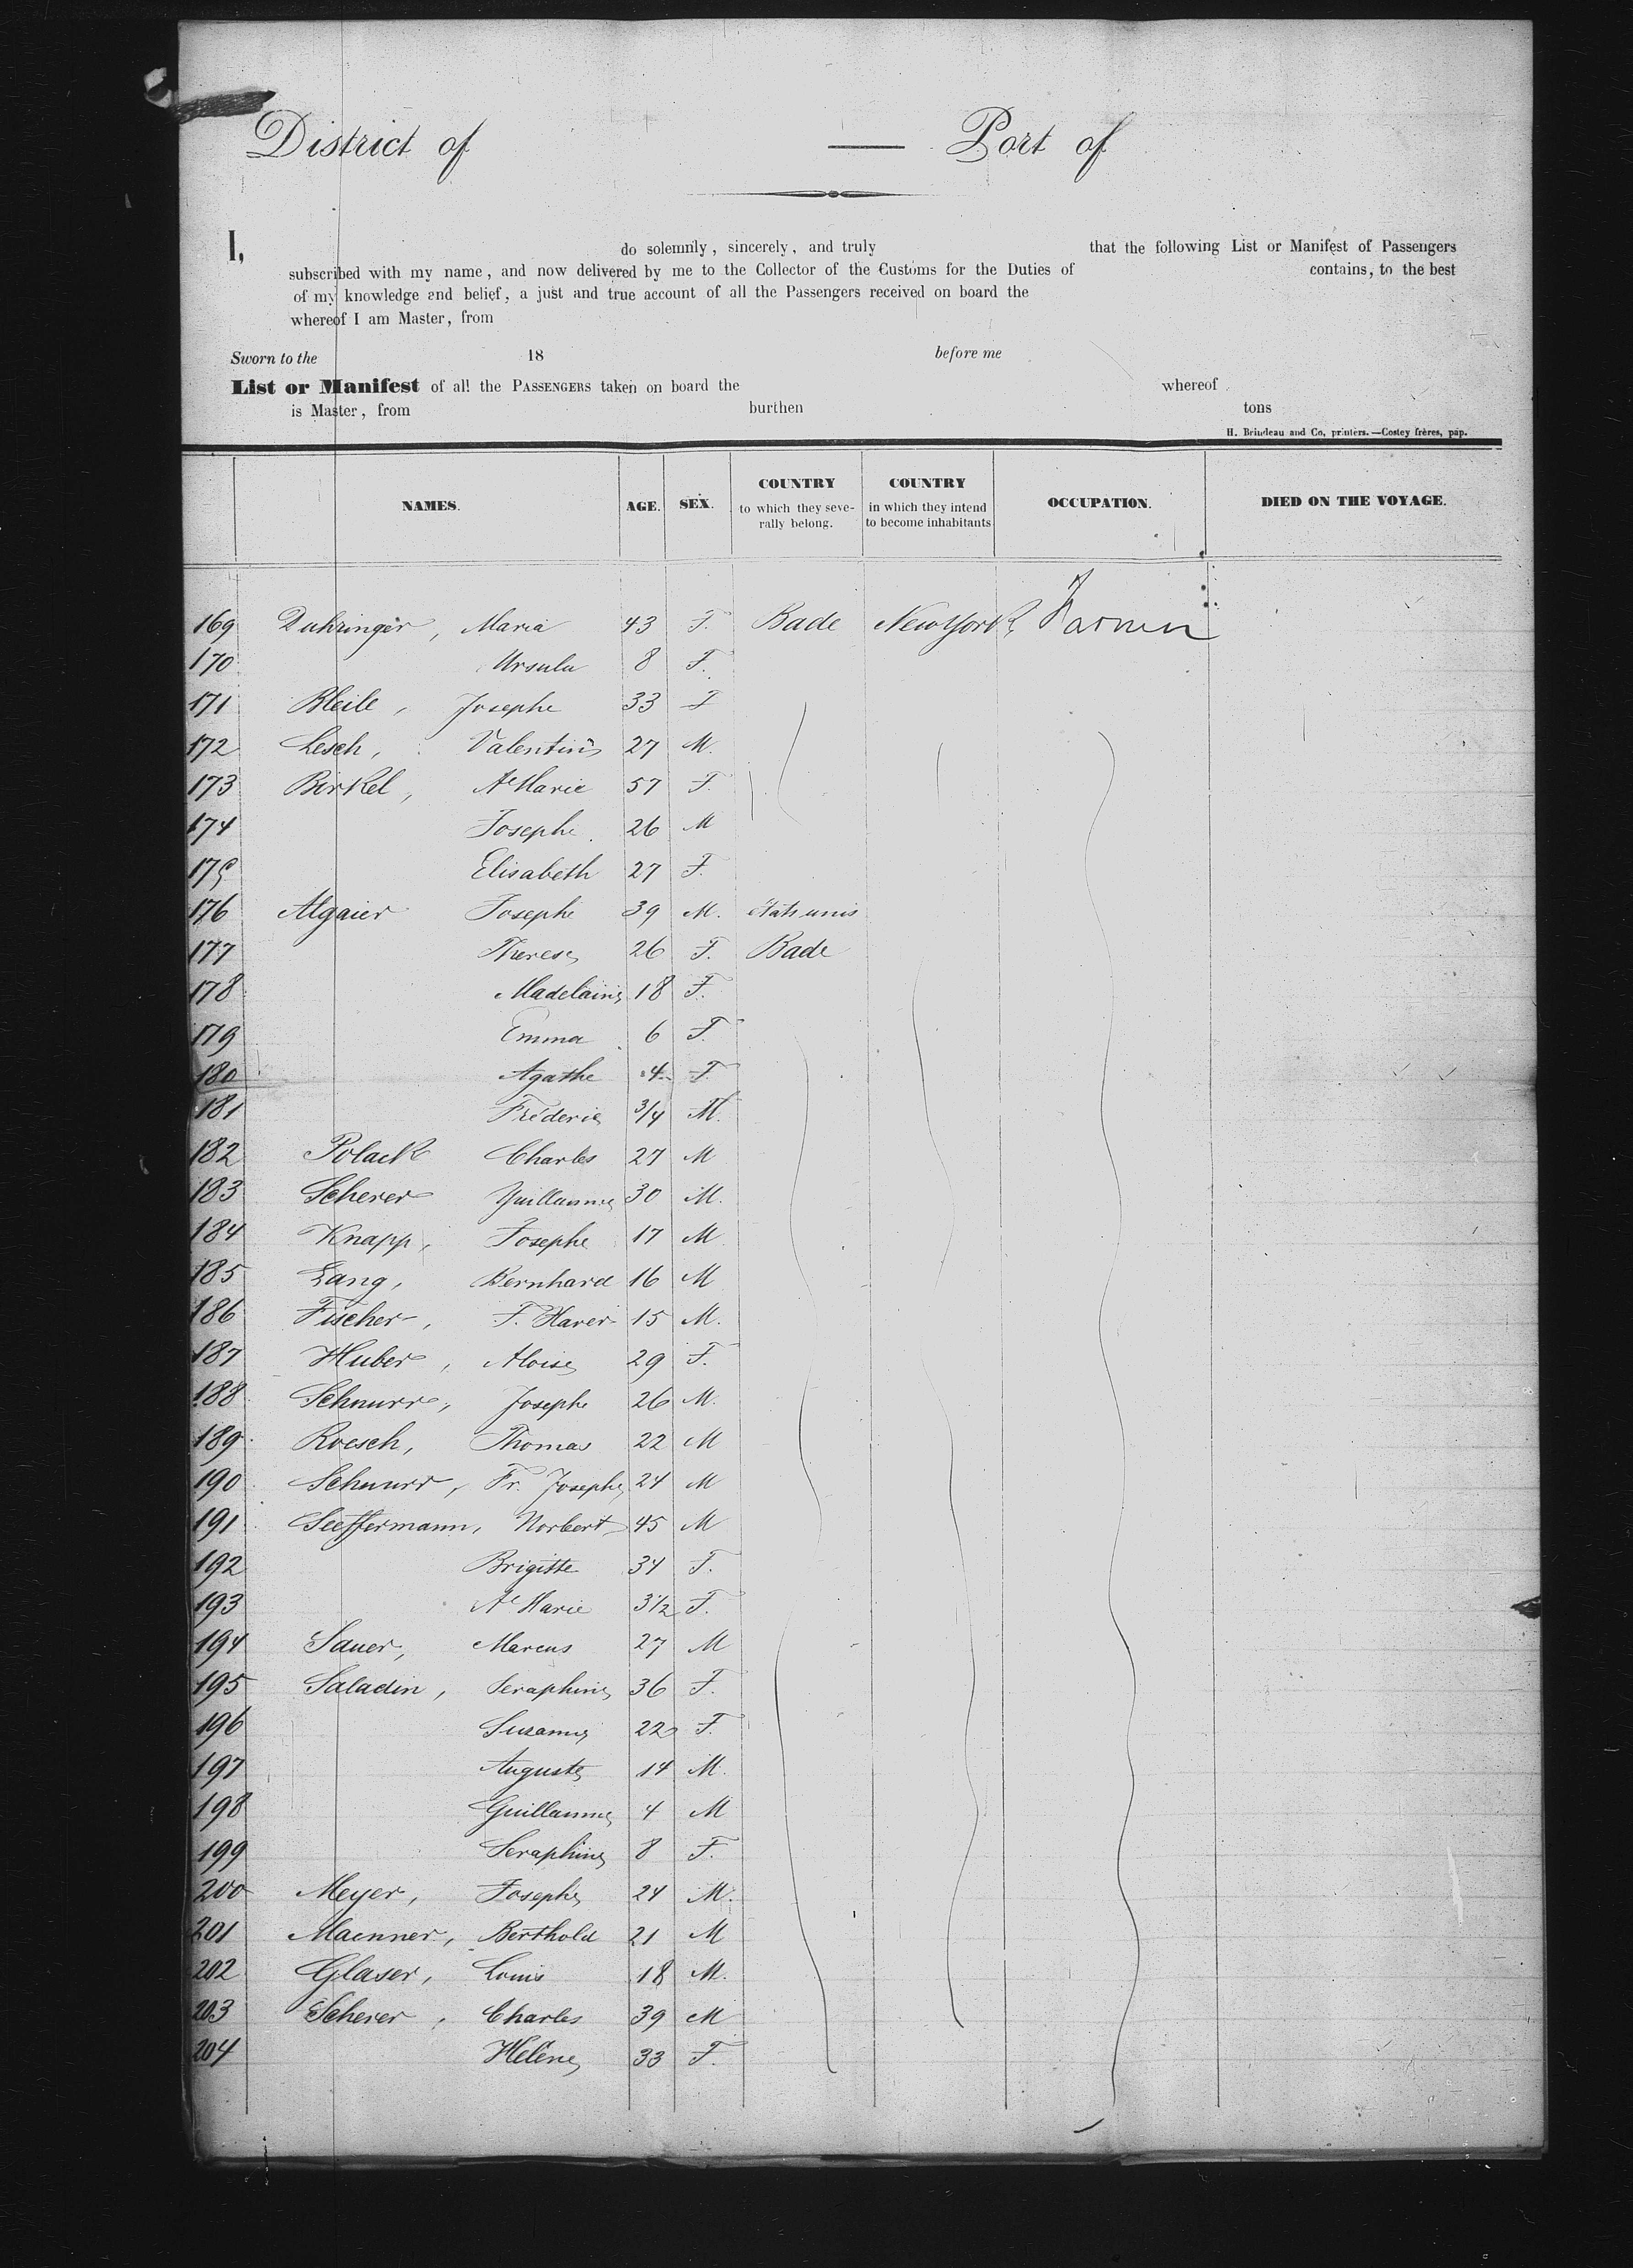 District of — Port of
I, do solemnly, sincerely, and truly that the following List or Manifest of Passengers
subscribed with my name, and now delivered by me to the Collector of the Customs for the Duties of contains, to the best
of my knowledge and belief, a just and true account of all the Passengers received on board the
whereof I am Master, from
Sworn to the 18 before me
List or Manifest of all the PASSENGERS taken on board the whereof
is Master, from burthen tons
H. Brindeau and Co, printers.—Costey frères, pap.
NAMES. AGE. SEX. COUNTRY to which they severally belong. COUNTRY in which they intend to become inhabitants OCCUPATION. DIED ON THE VOYAGE.
169 Duhringer, Maria 43 F. Bade New York Farmer
170 Ursula 8 F.
171 Bleile, Josephe 33 F
172 Lesch, Valentin 27 M.
173 Birkel, Ae Marie 57 F.
174 Josephe 26 M
175 Elisabeth 27 F.
176 Algaier Josephe 39 M. États unis
177 Therese 26 F. Bade
178 Madelaine 18 F.
179 Emma 6 F.
180 Agathe 4 F.
181 Fréderic 3/4 M.
182 Polack Charles 27 M
183 Scherer Guillaume 30 M.
184 Knapp, Josephe 17 M
185 Lang, Bernhard 16 M
186 Fischer, F. Xaver 15 M.
187 Huber, Aloise 29 F.
188 Schnurr, Josephe 26 M.
189 Roesch, Thomas 22 M
190 Schnurr, Fr. Josephe 24 M
191 Seeffermann, Norbert 45 M
192 Brigitte 34 F.
193 Ae Marie 3 1/2 F.
194 Sauer, Marcus 27 M
195 Saladin, Seraphine 36 F.
196 Suzanne 22 F.
197 Auguste 14 M.
198 Guillaume 4 M
199 Seraphine 8 F.
200 Meyer, Josephe 24 M.
201 Maenner, Berthold 21 M
202 Glaser, Louis 18 M.
203 Scherer, Charles 39 M
204 Helène 33 F.